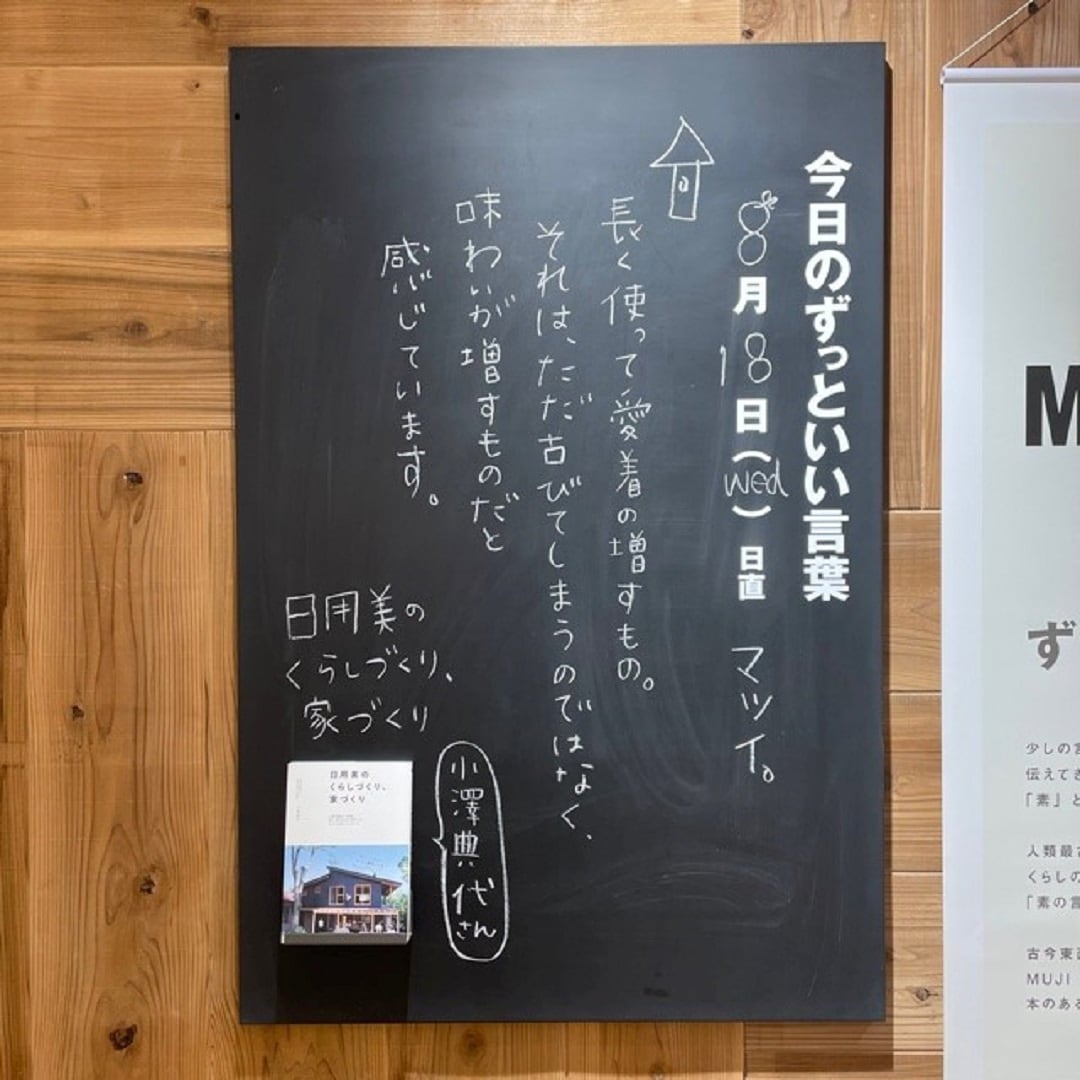 今日のずっといい言葉
8月18日(wed)日直 マツイ。
長く使って愛着の増すもの。
それは、ただ古びてしまうのではなく、
味わいが増すものだと
感じています。
日用美の
くらしづくり、
家づくり
小澤典代さん
日用美の
くらしづくり、
家づくり
M
ず
少しの言
伝えてき
「素」と
人類最古
くらしの
「素の言
古今東西
MUJI
本のある